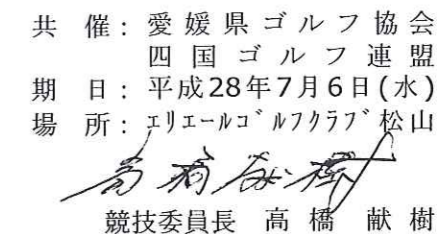 共　催：愛媛県ゴルフ協会
四国ゴルフ連盟
期　日：平成28年7月6日(水)
場　所：ｴﾘｴｰﾙｺﾞﾙﾌｸﾗﾌﾞ松山
高橋献樹
競技委員長　高橋　献樹